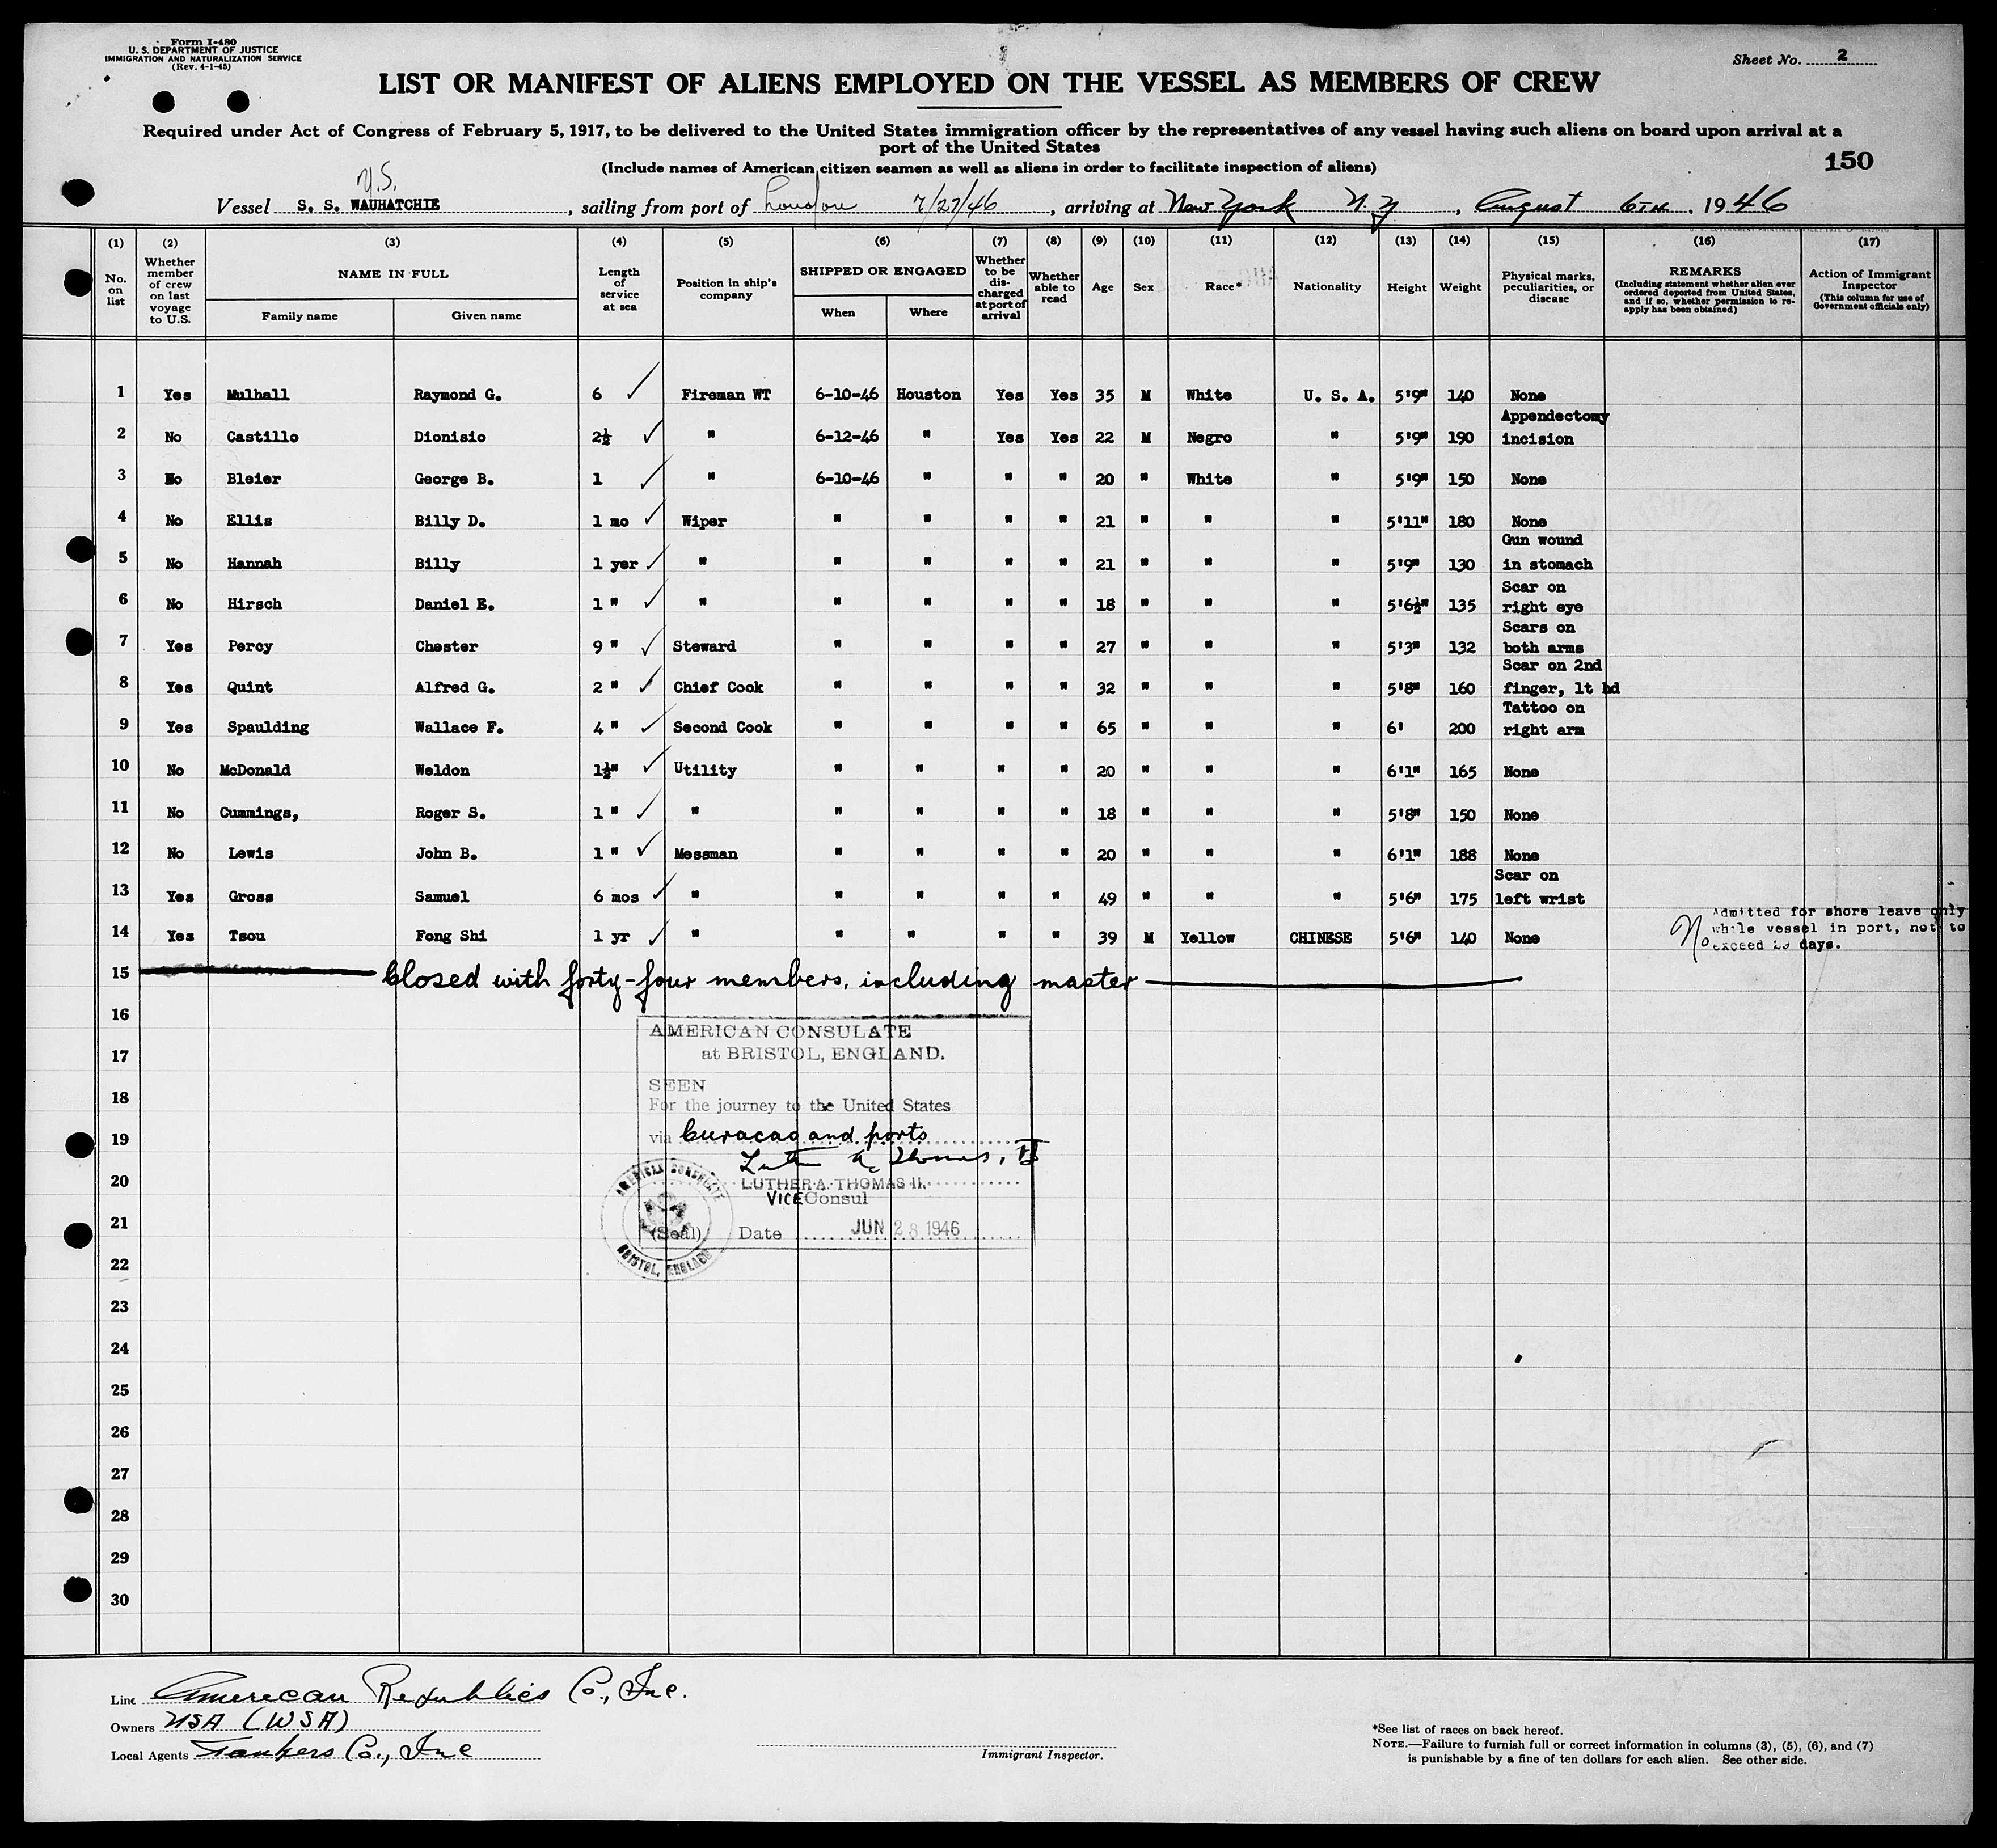 Form I-480
U. S. DEPARTMENT OF JUSTICE
IMMIGRATION AND NATURALIZATION SERVICE
(Rev. 4-1-45)
Sheet No. 2
LIST OR MANIFEST OF ALIENS EMPLOYED ON THE VESSEL AS MEMBERS OF CREW
Required under Act of Congress of February 5, 1917, to be delivered to the United States immigration officer by the representatives of any vessel having such aliens on board upon arrival at a
port of the United States
(Include names of American citizen seamen as well as aliens in order to facilitate inspection of aliens)
150
Vessel S. S. WAUHATCHIE, sailing from port of London 7/27/46, arriving at New York N.Y, August 6TH, 1946
(1) (2) (3) (4) (5) (6) (7) (8) (9) (10) (11) (12) (13) (14) (15) (16) (17)
No. on list
Whether member of crew on last voyage to U.S.
NAME IN FULL
Family name
Given name
Length of service at sea
Position in ship's company
SHIPPED OR ENGAGED
When
Where
Whether to be discharged at port of arrival
Whether able to read
Age
Sex
Race*
Nationality
Height
Weight
Physical marks, peculiarities, or disease
REMARKS
(Including statement whether alien ever ordered deported from United States, and if so, whether permission to re-apply has been obtained)
Action of Immigrant Inspector
(This column for use of Government officials only)
1 Yes Mulhall Raymond G. 6 ✓ Fireman WT 6-10-46 Houston Yes Yes 35 M White U. S. A. 5'9" 140 None
2 No Castillo Dionisio 2½ ✓ " 6-12-46 " Yes Yes 22 M Negro " 5'9" 190 Appendectomy incision
3 No Bleier George B. 1 ✓ " 6-10-46 " " " 20 " White " 5'9" 150 None
4 No Ellis Billy D. 1 mo ✓ Wiper " " " " 21 " " " 5'11" 180 None
5 No Hannah Billy 1 yer ✓ " " " " " 21 " " " 5'9" 130 Gun wound in stomach
6 No Hirsch Daniel E. 1 " ✓ " " " " " 18 " " " 5'6½" 135 Scar on right eye
7 Yes Percy Chester 9 " ✓ Steward " " " " 27 " " " 5'3" 132 Scars on both arms
8 Yes Quint Alfred G. 2 " ✓ Chief Cook " " " " 32 " " " 5'8" 160 Scar on 2nd finger, lt hd
9 Yes Spaulding Wallace F. 4 " ✓ Second Cook " " " " 65 " " " 6' 200 Tattoo on right arm
10 No McDonald Weldon 1½" ✓ Utility " " " " 20 " " " 6'1" 165 None
11 No Cummings, Roger S. 1 " ✓ " " " " " 18 " " " 5'8" 150 None
12 No Lewis John B. 1 " ✓ Messman " " " " 20 " " " 6'1" 188 None
13 Yes Gross Samuel 6 mos ✓ " " " " " 49 " " " 5'6" 175 Scar on left wrist
14 Yes Tsou Fong Shi 1 yr ✓ " " " " " 39 M Yellow CHINESE 5'6" 140 None No Admitted for shore leave only while vessel in port, not to exceed 29 days.
15 Closed with forty-four members, including master
16
AMERICAN CONSULATE
17
at BRISTOL, ENGLAND.
SEEN
18
For the journey to the United States
19
via Curacao and ports
Luther A. Thomas, II
20
LUTHER A. THOMAS II.
VICE Consul
21
(Seal) Date JUN 28 1946
AMERICAN CONSULATE
BRISTOL, ENGLAND
22
23
24
25
26
27
28
29
30
Line American Republics Co., Inc.
Owners USA (WSA)
Local Agents Tankers Co., Inc
Immigrant Inspector.
*See list of races on back hereof.
NOTE.—Failure to furnish full or correct information in columns (3), (5), (6), and (7)
is punishable by a fine of ten dollars for each alien. See other side.